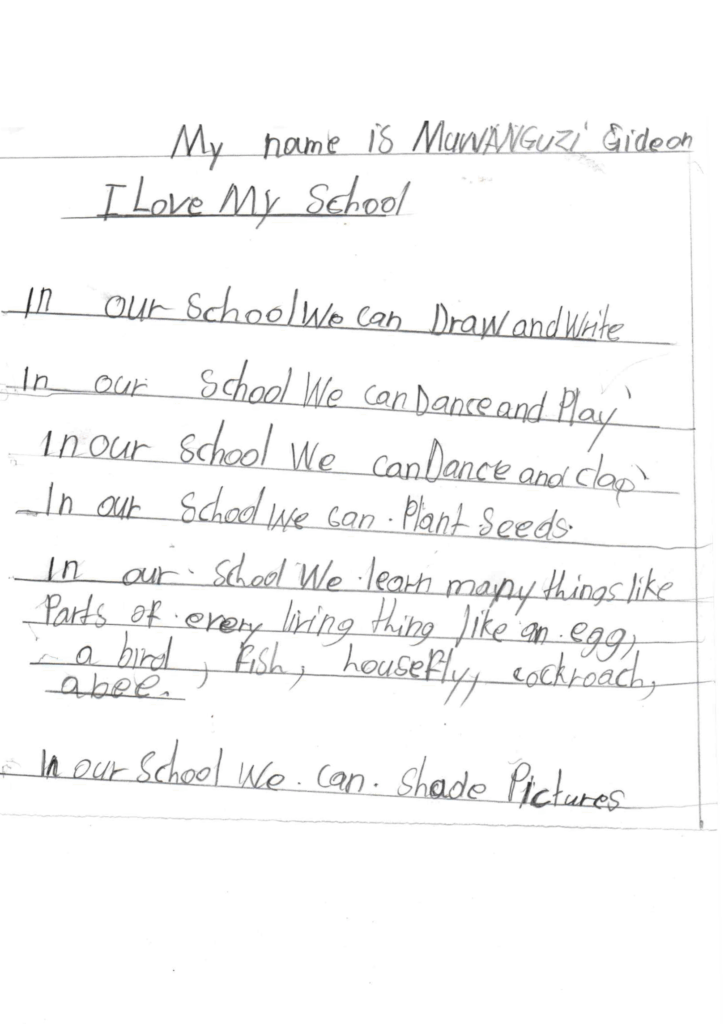 My name is MUWANGUZI Gideon
I Love My School
In our School We can Draw and Write
In our School We can Dance and Play
In our School We can Dance and clap
In our School We can. Plant Seeds.
In our. School We. learn many things like
Parts of. every living thing like an. egg,
a bird, fish, housefly, cockroach,
a bee.
In our School We. Can. Shade Pictures